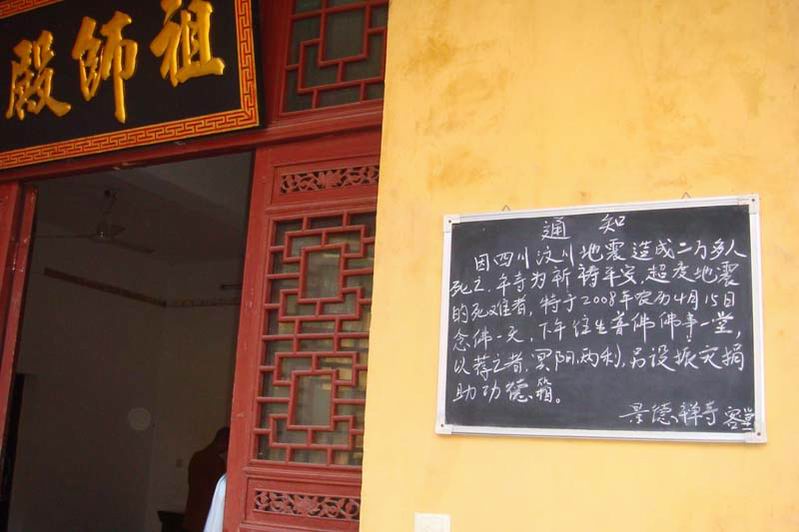 祖師殿
通知
因四川汶川地震造成二万多人
死亡，本寺为祈祷平安，超度地震
的死难者，特于2008年农历4月15日
念佛一天，下午往生普佛佛事一堂，
以荐亡者，冥阳两利，另设赈灾捐
助功德箱。
景德禅寺 客堂